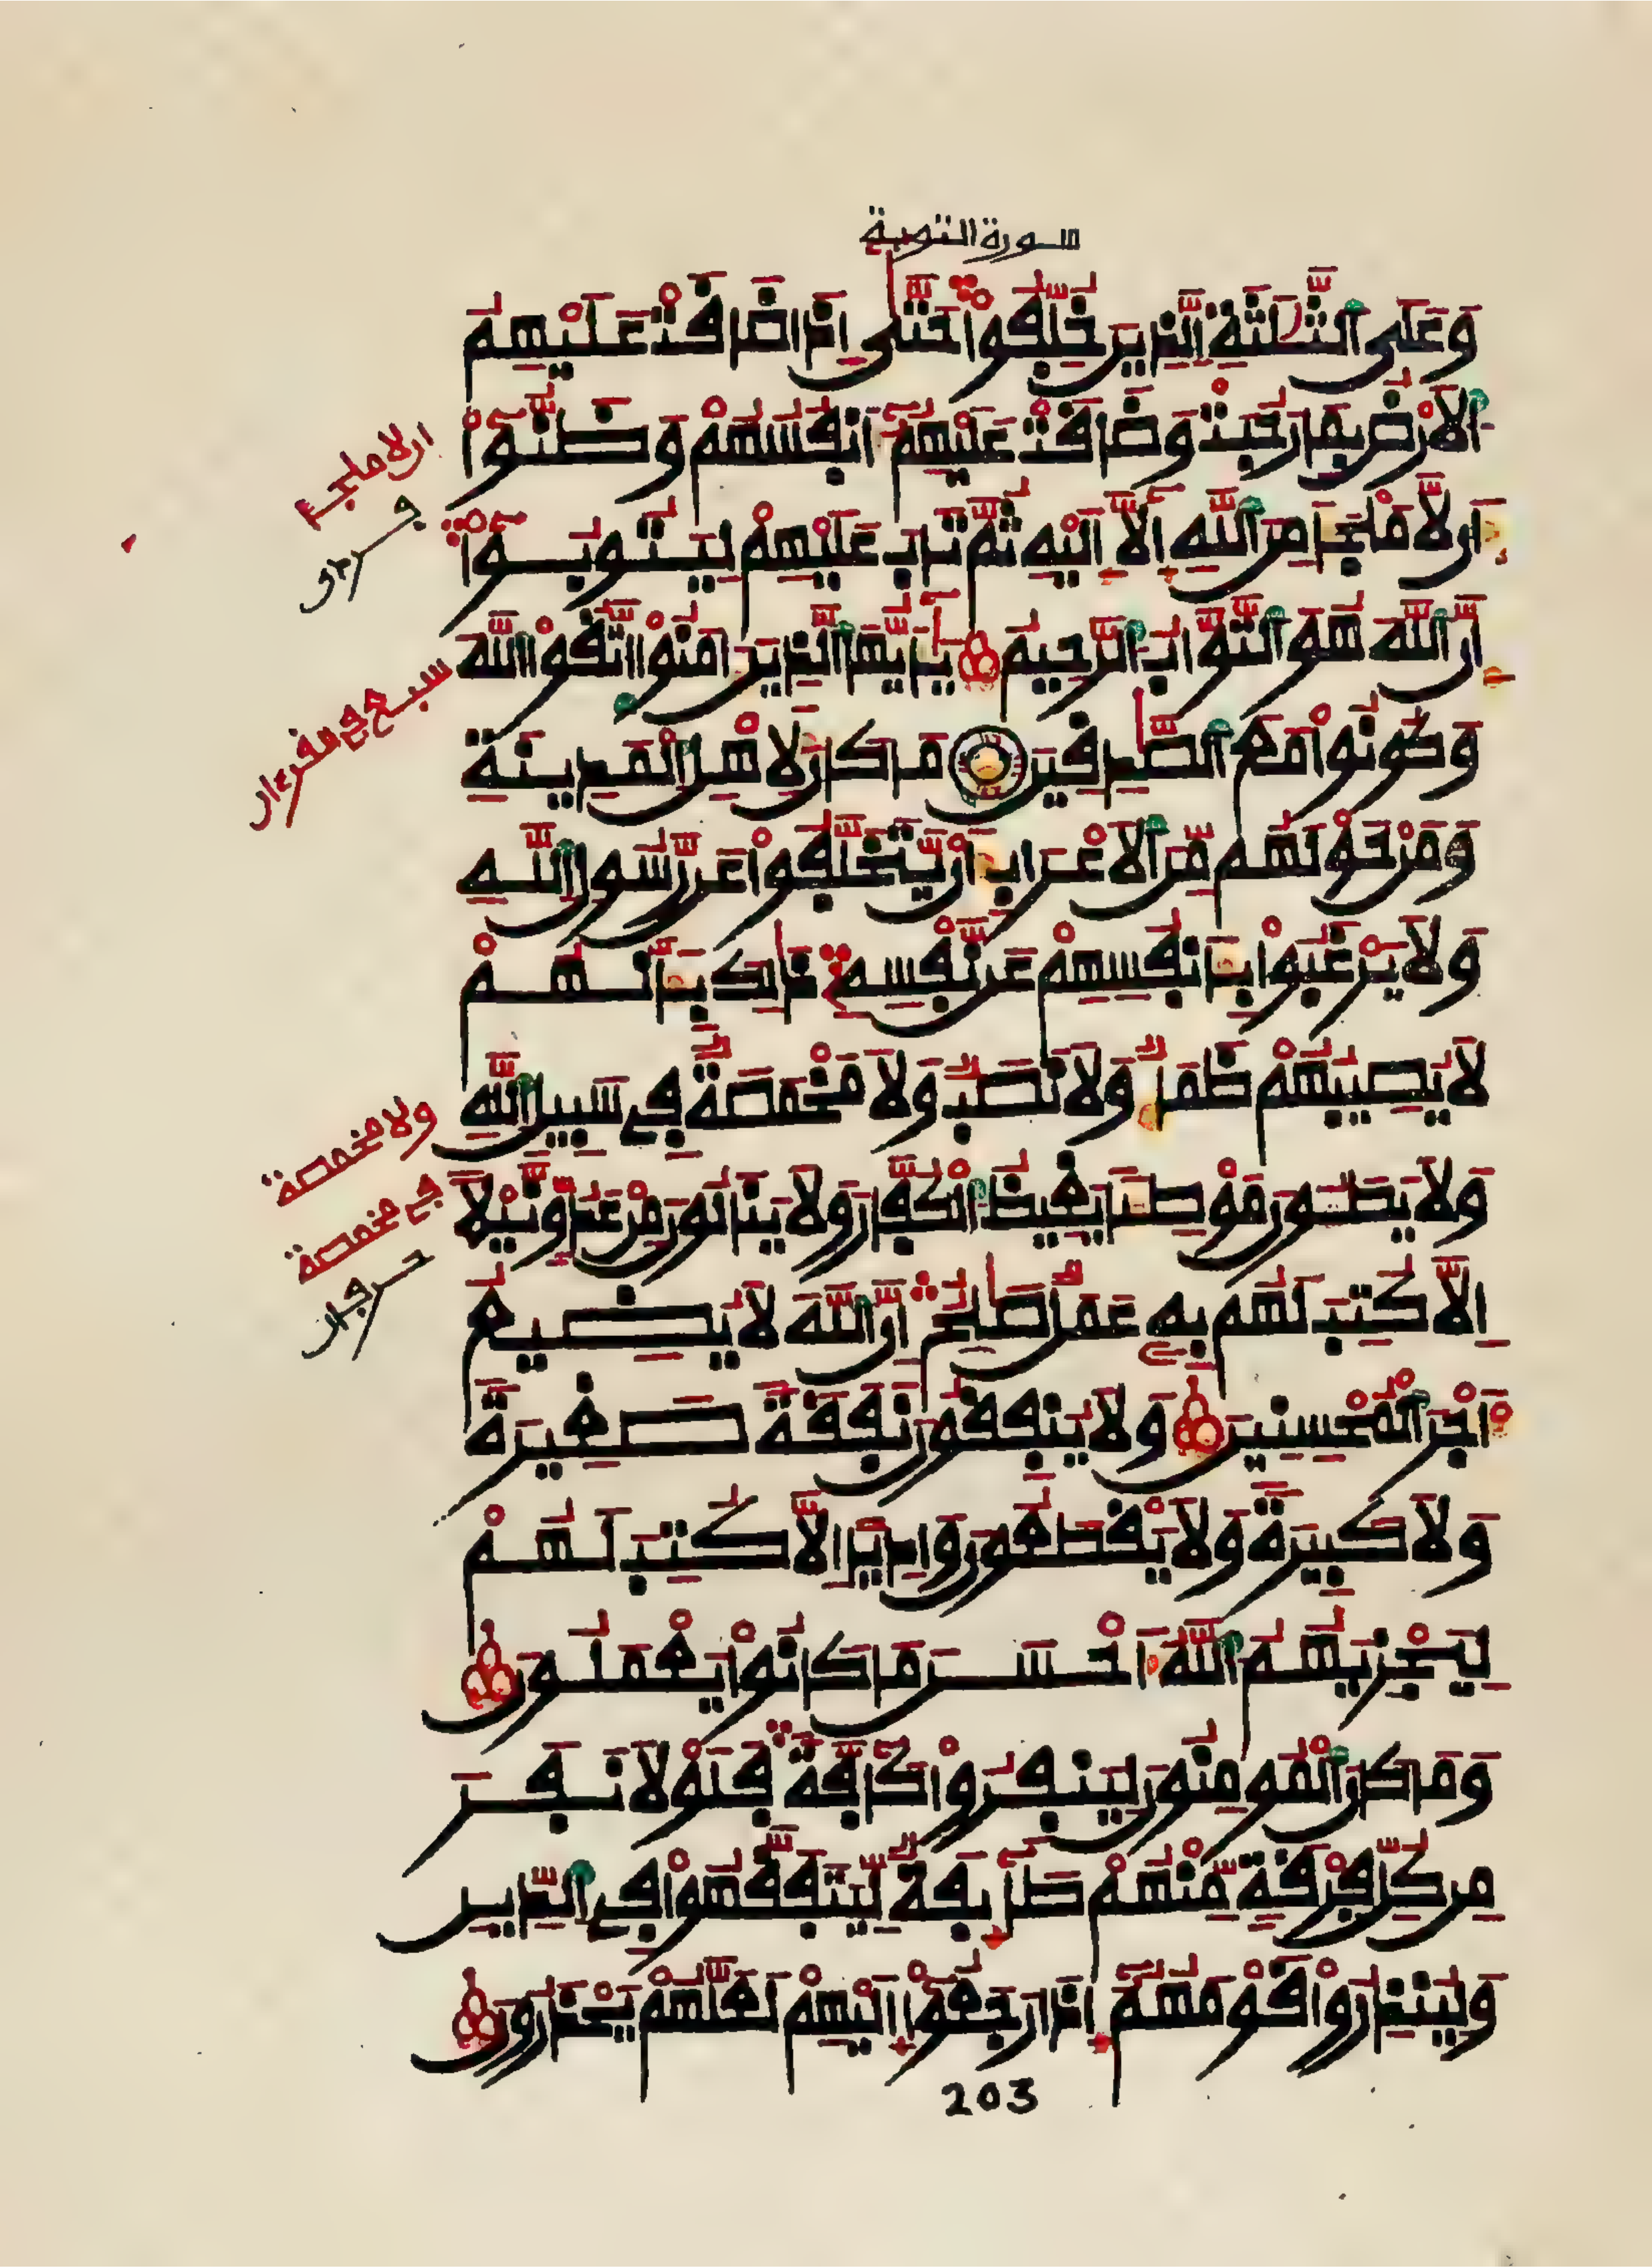 سورة التوبة
وَعَلَى الثَّلَٰثَةِ الَّذِينَ خُلِّفُواْ حَتَّىٰ إِذَا ضَاقَتْ عَلَيْهِمُ
الْأَرْضُ بِمَا رَحُبَتْ وَضَاقَتْ عَلَيْهِمُ أَنفُسُهُمْ وَظَنُّواْ
أَن لَّا مَلْجَأَ مِنَ اللَّهِ إِلَّا إِلَيْهِ ثُمَّ تَابَ عَلَيْهِمْ لِيَتُوبُواْ
إِنَّ اللَّهَ هُوَ التَّوَّابُ الرَّحِيمُ يَٰأَيُّهَا الَّذِينَ ءَامَنُواْ اتَّقُواْ اللَّهَ
وَكُونُواْ مَعَ الصَّٰدِقِينَ مَا كَانَ لِأَهْلِ الْمَدِينَةِ
وَمَنْ حَوْلَهُم مِّنَ الْأَعْرَابِ أَنْ يَّتَخَلَّفُواْ عَن رَّسُولِ اللَّهِ
وَلَا يَرْغَبُواْ بِأَنفُسِهِمْ عَن نَّفْسِهِ ذَٰلِكَ بِأَنَّهُمْ
لَا يُصِيبُهُمْ ظَمَأٌ وَلَا نَصَبٌ وَلَا مَخْمَصَةٌ فِي سَبِيلِ اللَّهِ
وَلَا يَطَـُٔونَ مَوْطِئًا يَغِيظُ الْكُفَّارَ وَلَا يَنَالُونَ مِنْ عَدُوٍّ نَّيْلًا
إِلَّا كُتِبَ لَهُم بِهِ عَمَلٌ صَٰلِحٌ إِنَّ اللَّهَ لَا يُضِيعُ
أَجْرَ الْمُحْسِنِينَ وَلَا يُنفِقُونَ نَفَقَةً صَغِيرَةً
وَلَا كَبِيرَةً وَلَا يَقْطَعُونَ وَادِيًا إِلَّا كُتِبَ لَهُمْ
لِيَجْزِيَهُمُ اللَّهُ أَحْسَنَ مَا كَانُواْ يَعْمَلُونَ
وَمَا كَانَ الْمُومِنُونَ لِيَنفِرُواْ كَآفَّةً فَلَوْلَا نَفَرَ
مِن كُلِّ فِرْقَةٍ مِّنْهُمْ طَآئِفَةٌ لِّيَتَفَقَّهُواْ فِي الدِّينِ
وَلِيُنذِرُواْ قَوْمَهُمُ إِذَا رَجَعُواْ إِلَيْهِمْ لَعَلَّهُمْ يَحْذَرُونَ
203
ان لا ملجأ
ولا مخمصة
في مخمصة